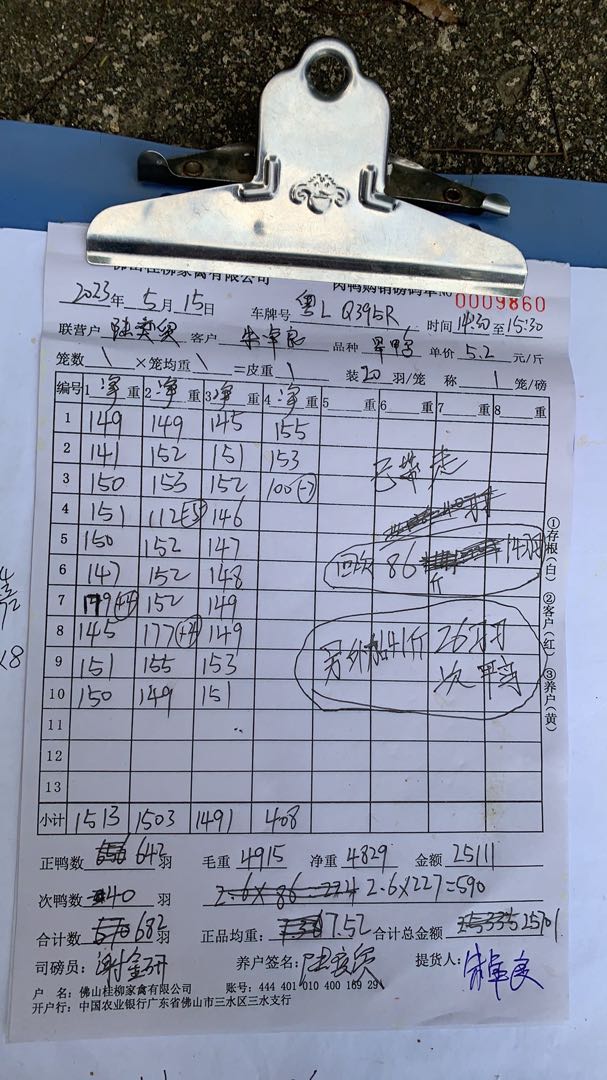 佛山桂柳家禽有限公司 肉鸭购销磅码单№ 0009860
2023年 5月 15日 车牌号 粤L Q395R 时间 14:30 至 15:30
联营户 客户 品种 单价 5.2 元/斤
笼数 \ ×笼均重 \ =皮重 \ 装 20 羽/笼 称 1 笼/磅
编号 1 净 重 2 净 重 3 净 重 4 净 重 5 重 6 重 7 重 8 重
1 149 149 145 155
2 141 152 151 153
3 150 153 152 100(-7)
4 151 112(-5) 146
5 150 152 147
6 147 152 148
7 179(+4) 152 149
8 145 177(+4) 149
9 151 155 153
10 150 149 151
11
12
13
回次 86 斤 14羽
另外加141斤 26羽
次鸭
小计 1513 1503 1491 408
正鸭数 642 羽 毛重 4915 净重 4829 金额 25111
次鸭数 40 羽 2.6×227=590
合计数 682 羽 正品均重: 7.52 合计总金额 25701
司磅员: 养户签名: 提货人:
户 名: 佛山桂柳家禽有限公司 账号: 444 401 010 400 169 29
开户行: 中国农业银行广东省佛山市三水区三水支行
①存根(白) ②客户(红) ③养户(黄)